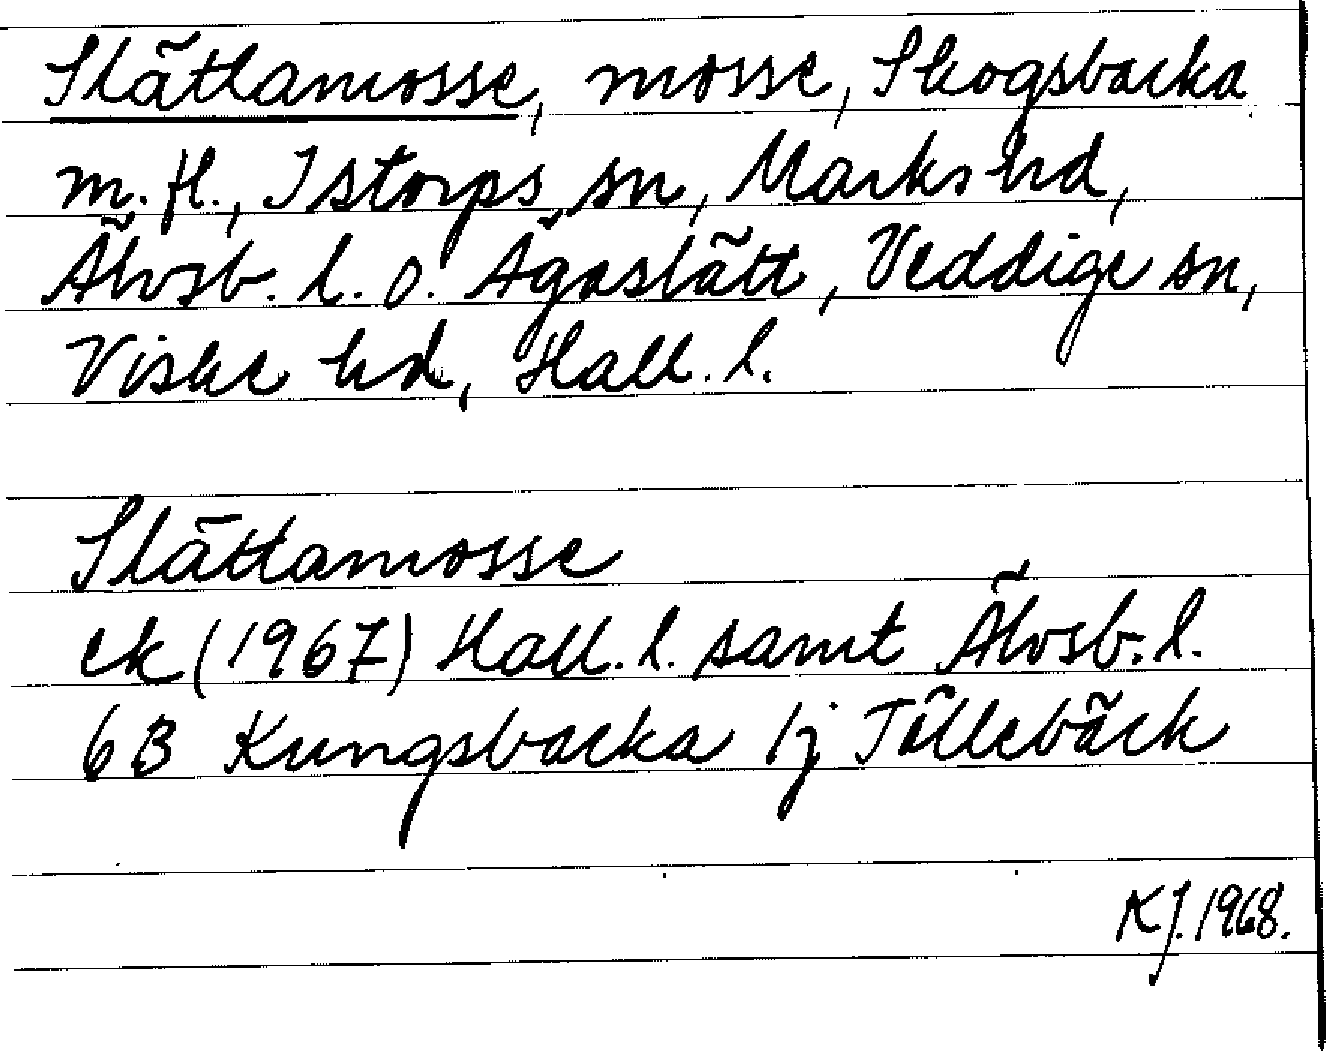 Slättamosse, mosse, Skogsbacka
m. fl., Istorps sn, Marks hd,
Älvsb. l. o. Ägaslätt, Veddige sn,
Viske hd, Hall. l.
Slättamosse
ek (1967) Hall. l. samt Älvsb. l.
6B Kungsbacka 1j Tållebäck
KJ. 1968.